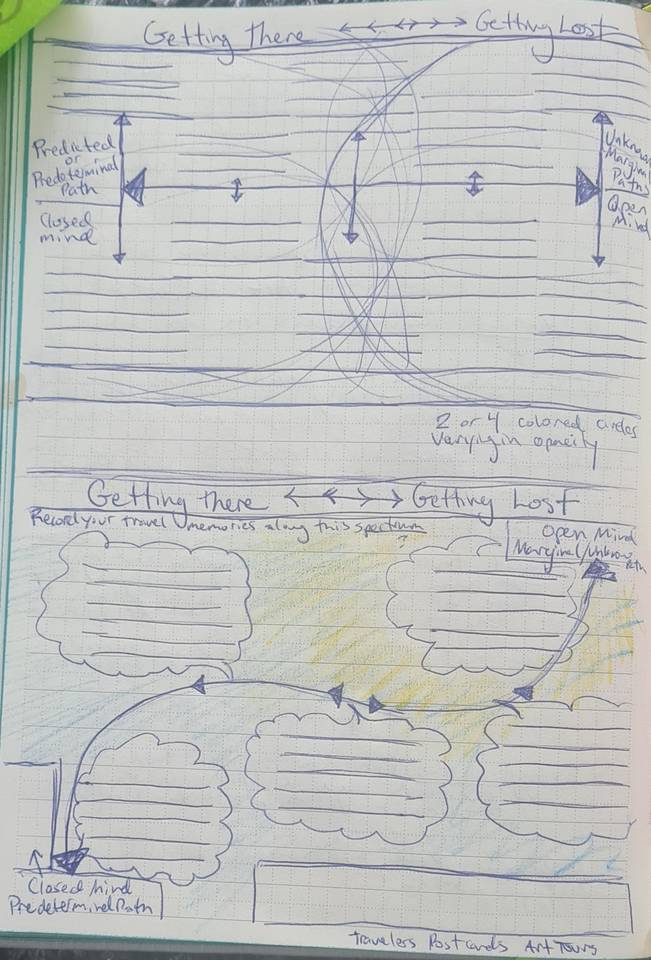 Getting There Getting Lost
Predicted
or
Predeterminal
Path
Closed
mind
Unknown
Marginal
Paths
Open
Mind
2 or 4 colored circles
Varying in opacity
Getting there Getting Lost
Record your travel memories along this spectrum
?
Open Mind
Marginal/Unknown Path
Closed Mind
Predetermind Path
Travelers Postcards Art Tours